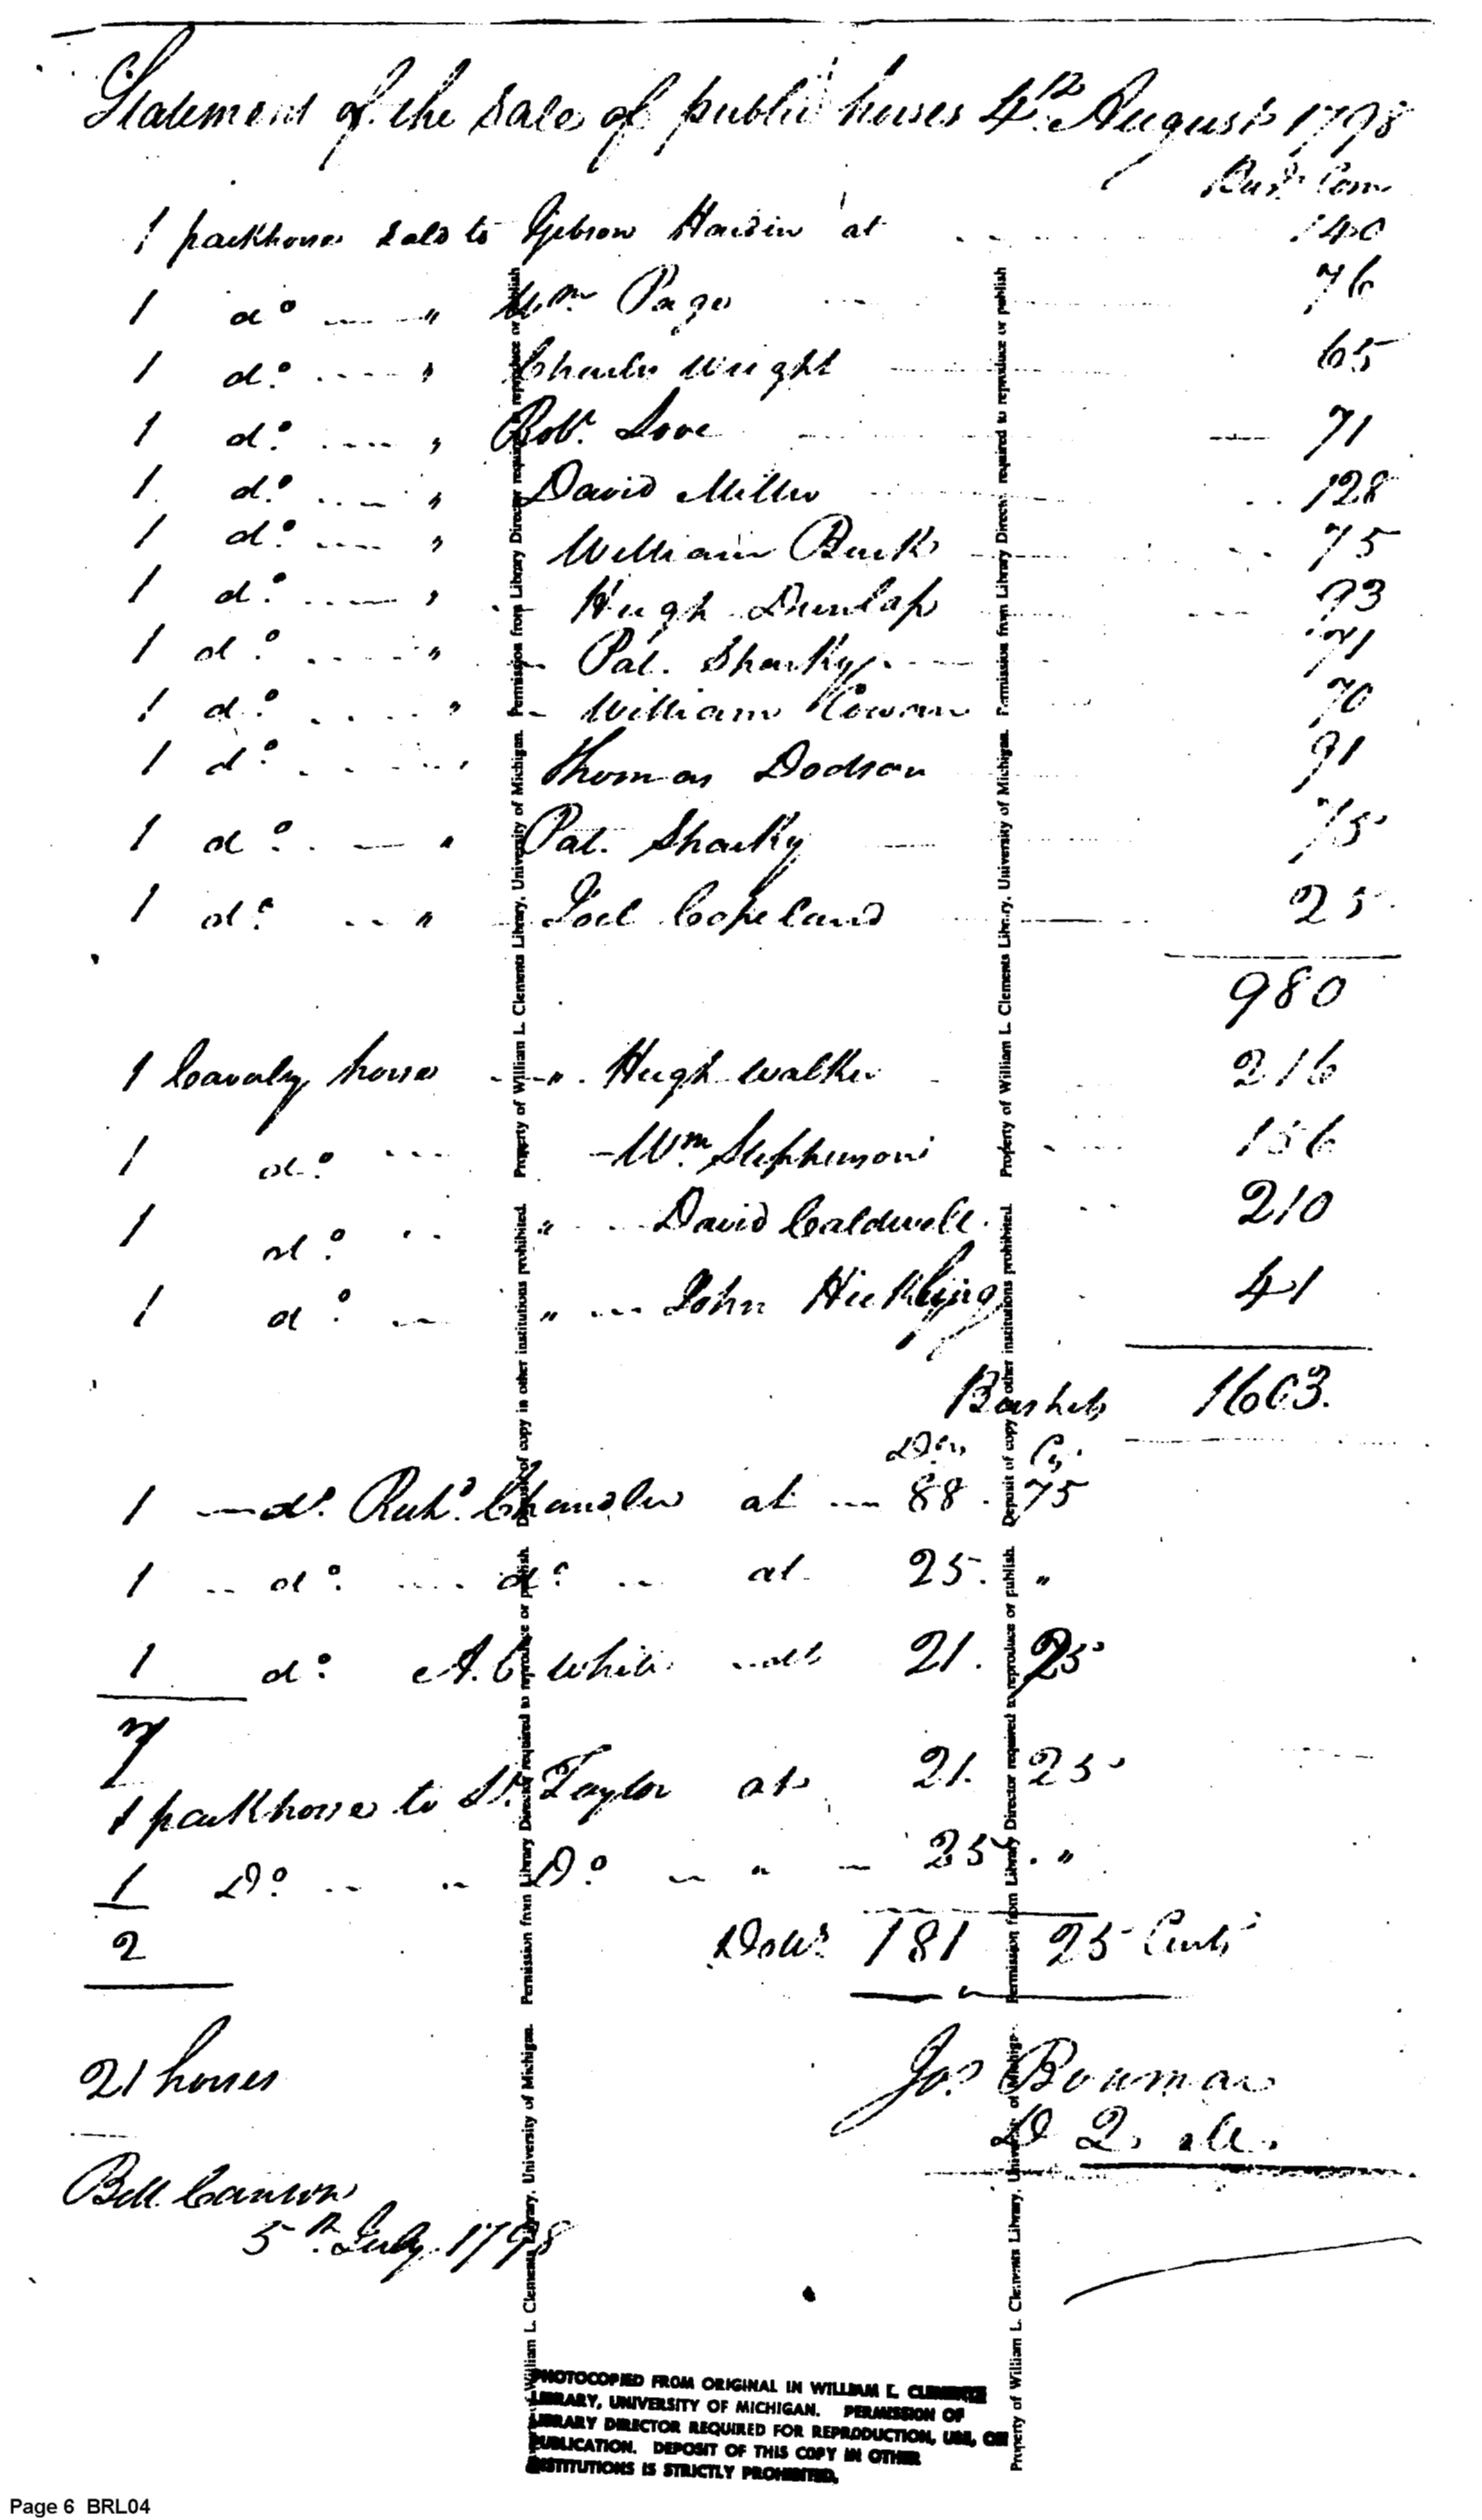 Statement of the sale of public horses 4th August 1798
Bush. Corn
1 packhorse sold to Gibson Hardin at 140
1 do " Wm Page 76
1 do. " Charles Wright 65
1 do. " Robt. Love 71
1 do. " David Miller 128
1 do. " William Burk 75
1 do. " Hugh Dunlap 93
1 do. " Pat. Sharky 71
1 do. " William Cowan 70
1 do. " Thomas Dodson 91
1 do. " Pat. Sharky 75
1 do. " Joel Copeland 25
980
1 Cavalry horse " Hugh Walker 216
1 do. Wm. Stephenson 156
1 do. " David Caldwell 210
1 do. " John Hickling 41
Bushels 1663.
Drs Cs.
1 do. Richd. Chandler at 88. 75
1 do. do. at 25. "
1 do. A. C. White at 21. 25
7
1 packhorse to Taylor at 21. 25
1 Do. " Do " 25. "
2 Dolls 181 25 Cents
21 horses
Jos. Boumar
D Q. M.
Bell Canton
5th. July. 1798
Property of William L. Clements Library, University of Michigan. Permission from Library Director required to reproduce or publish
Deposit of copy in other institutions prohibited.
PHOTOCOPIED FROM ORIGINAL IN WILLIAM L. CLEMENTS
LIBRARY, UNIVERSITY OF MICHIGAN. PERMISSION OF
LIBRARY DIRECTOR REQUIRED FOR REPRODUCTION, USE, OR
PUBLICATION. DEPOSIT OF THIS COPY IN OTHER
INSTITUTIONS IS STRICTLY PROHIBITED.
Page 6 BRL04